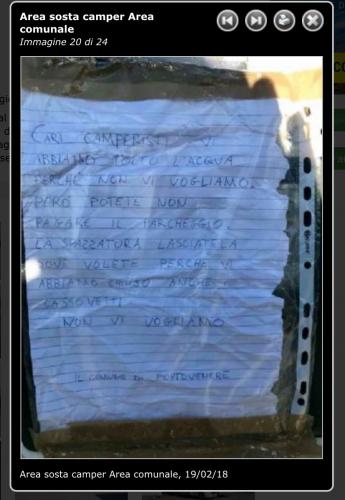 Area sosta camper Area
comunale
Immagine 20 di 24
CARI CAMPERISTI VI
ABBIAMO TOLTO L'ACQUA
PERCHÉ NON VI VOGLIAMO.
PERÒ POTETE NON
PAGARE IL PARCHEGGIO.
LA SPAZZATURA LASCIATELA
DOVE VOLETE PERCHE VI
ABBIAMO CHIUSO ANCHE I
CASSOVETTI
NON VI VOGLIAMO
IL COMUNE DI PORTOVENERE
Area sosta camper Area comunale, 19/02/18